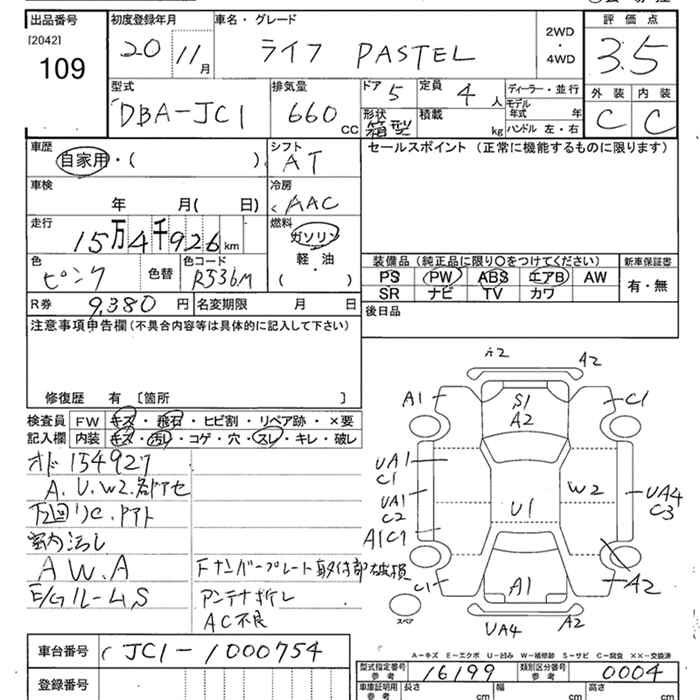 出品番号 [2042] 109
初度登録年月 20 11月
車名・グレード ライフ PASTEL
2WD・4WD
評価点 3.5
型式 DBA-JC1
排気量 660 CC
ドア 5
定員 4人
形状 箱型
積載 kg
ディーラー・並行
モデル年式 年
ハンドル 左・右
外装 C
内装 C
車歴 自家用・( )
シフト AT
車検 年 月( 日)
冷房 AAC
走行 15万4千926km
燃料 ガソリン 軽・油 ( )
色 ピンク 色替
色コード R536M
R券 9,380円
名変期限 月 日
セールスポイント (正常に機能するものに限ります)
装備品(純正品に限り○をつけてください)
新車保証書 有・無
PS PW ABS エアB AW
SR ナビ TV カワ
後日品
注意事項申告欄(不具合内容等は具体的に記入して下さい)
修復歴 有 [箇所 ]
検査員記入欄
FW キズ・飛石・ヒビ割・リペア跡・×要
内装 キズ・汚れ・コゲ・穴・スレ・キレ・破レ
オド 154927
A.U.W2.
下回り
室内汚レ
A W.A
E/Gルーム S
Fナンバープレート取付部破損
アンテナ折レ
AC不良
A2
A2
A1
S1
A2
C1
UA1
C1
UA1
C2
W2
U1
UA4
C3
A1C1
C1
A1
A2
UA4
A2
スペア
A－キズ E－エクボ U－凹み W－補修跡 S－サビ C－腐食 ××－交換済
車台番号 JC1-1000754
登録番号
型式指定番号 参考 16199
類別区分番号 参考 0004
車庫証明用 参考 長さ cm 幅 cm 高さ cm